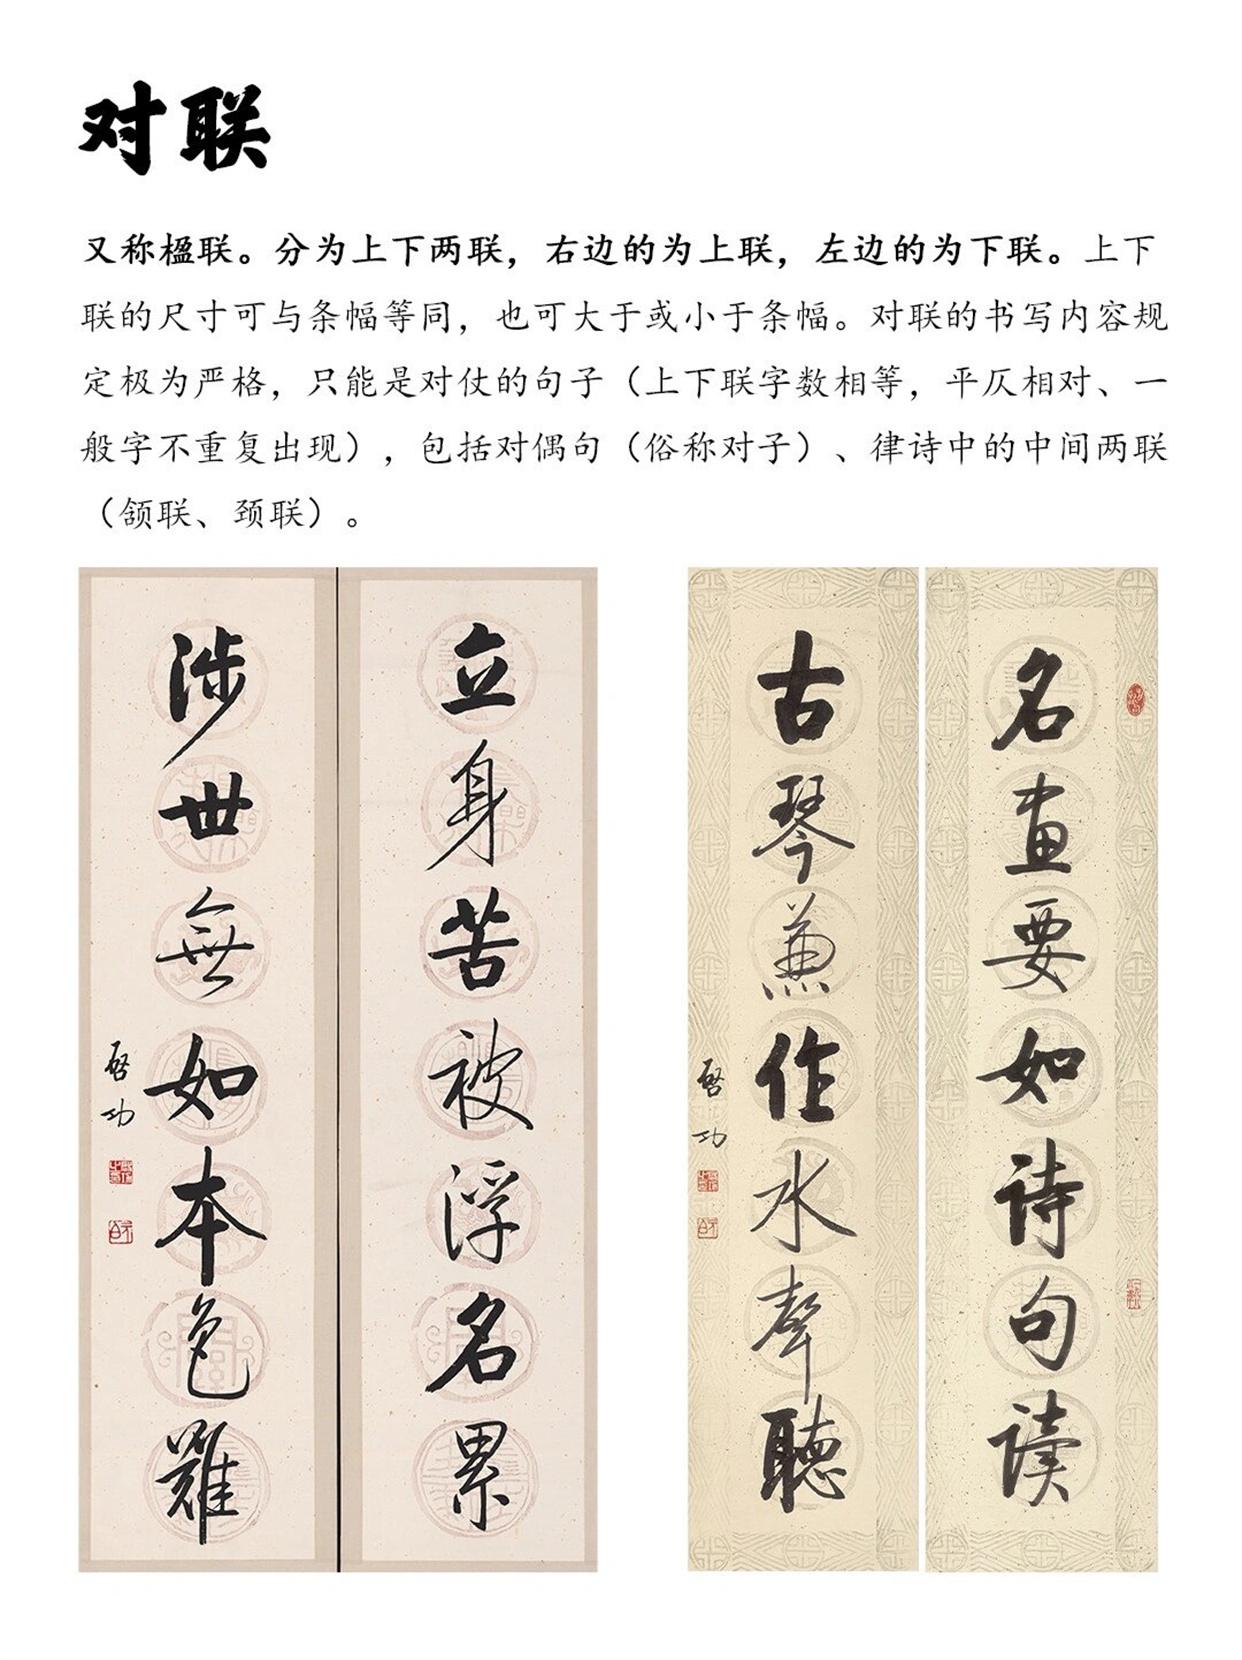 对联
又称楹联。分为上下两联，右边的为上联，左边的为下联。上下
联的尺寸可与条幅等同，也可大于或小于条幅。对联的书写内容规
定极为严格，只能是对仗的句子（上下联字数相等，平仄相对、一
般字不重复出现），包括对偶句（俗称对子）、律诗中的中间两联
（颔联、颈联）。
立身苦被浮名累
涉世無如本色難
启功
名画要如诗句读
古琴兼作水聲聽
启功